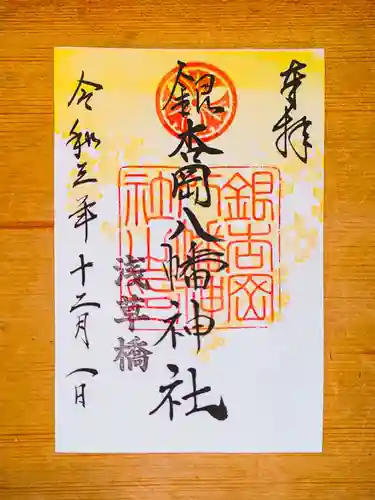 奉拝
銀杏岡八幡神社
銀杏岡
八幡神
社之印
浅草橋
令和三年十二月八日